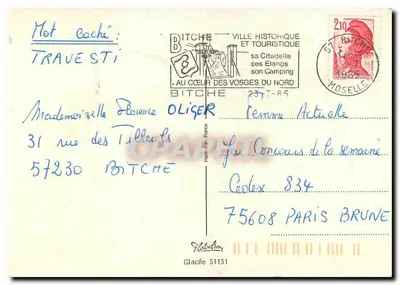 Mot caché:
TRAVESTI
Mademoiselle Florence OLIGER
31 rue des Tilleuls
57230 BITCHE
BITCHE
VILLE HISTORIQUE
ET TOURISTIQUE
sa Citadelle
ses Etangs
son Camping
AU CŒUR DES VOSGES DU NORD
BITCHE
2,10
57 BITCHE
MOSELLE
Femme Actuelle
Jeu Concours de la semaine
Cedex 834
75608 PARIS BRUNE
CPAPHIL
Glacée 51131